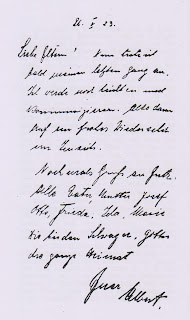 26. V 23.
Liebe Eltern! Nun trete ich
bald meinen letzten Gang an.
Ich werde noch beichten und
kommunizieren. Also dann
auf ein frohes Wiedersehen
im Jenseits.
Noch viele Grüße an
Alle Vater, Mutter Josef
Otto, Frieda, Ida, Marie
die beiden Schwager, Götte
die ganze Heimat
Euer
Albert.